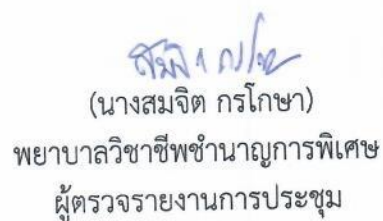 (นางสมจิต กรโกษา)
พยาบาลวิชาชีพชำนาญการพิเศษ
ผู้ตรวจรายงานการประชุม